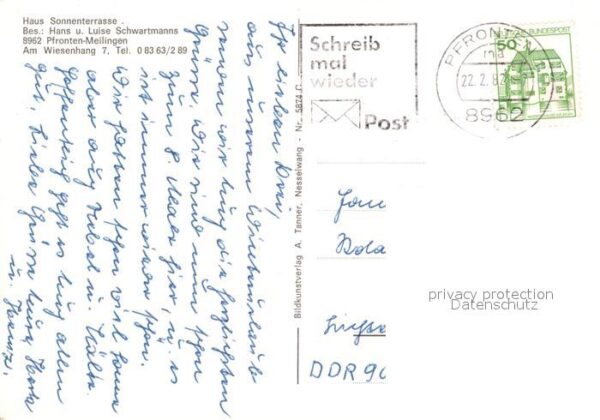 Haus Sonnenterrasse
Bes.: Hans u. Luise Schwartmanns
8962 Pfronten-Meilingen
Am Wiesenhang 7, Tel. 0 83 63/2 89
Ihr lieben Drei,
aus unserem Winterurlaub
senden wir Euch die herzlichsten
Grüße. Wir sind nun schon
zum 8. Male hier, u. es
ist immer wieder schön.
Wir hatten schon viel Sonne
aber auch Nebel u. Kälte.
Hoffentlich geht es Euch allen
gut. Viele Grüße Eure
u. Heinz.
Bildkunstverlag A. Tanner, Nesselwang - Nr. 5874 C
Schreib
mal
wieder
Post
PFRONTEN
22.2.82
8962
50
DEUTSCHE BUNDESPOST
Fam
Rola
DDR 90
privacy protection
Datenschutz